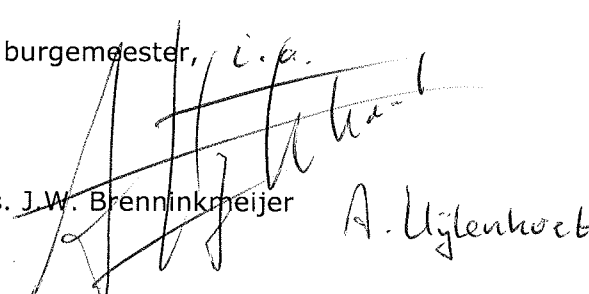 burgemeester, i.o.
s. J.W. Brenninkmeijer
A. Uijlenhoet